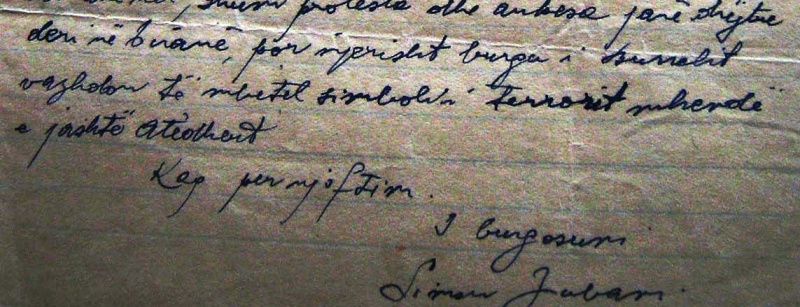 shumë protesta dhe ankesa janë drejtue
deri në Tiranë, por njerisht burgu i Burrelit
vazhdon të mbetet simboli i terrorit mbrendë
e jashtë Atdheut
Kaq per njoftim.
I burgosuri
Simon Jubani.